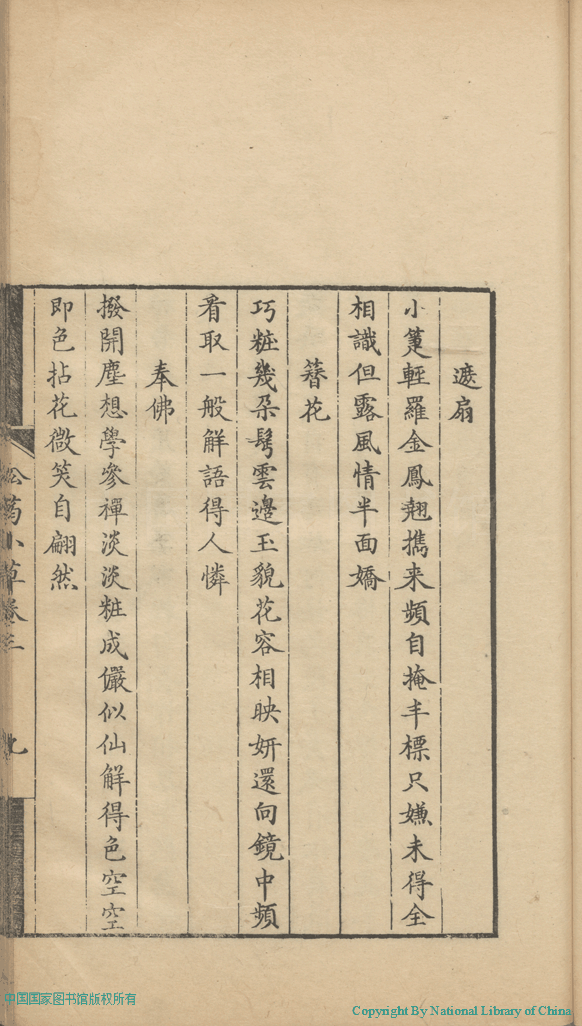 遮扇
小箑輕羅金鳳翹攜来頻自掩丰標只嫌未得全
相識但露風情半面嬌
簪花
巧粧幾朶髩雲邉玉貌花容相映姸還向鏡中頻
看取一般觧語得人憐
奉佛
撥開塵想學參禪淡淡粧成儼似仙觧得色空空
即色拈花微笑自翩然
小草卷三
九
中国国家图书馆版权所有
Copyright By National Library of China